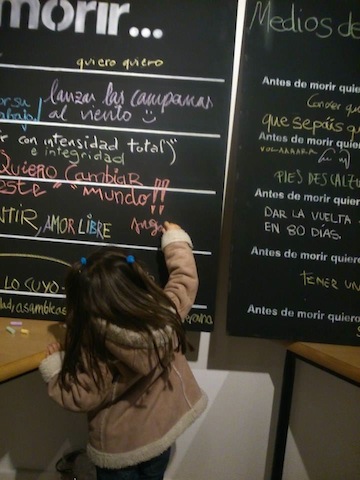 morir...
quiero quiero
lanzar las campanas
al viento
con intensidad total")
e integridad
QUIERO CAMBIAR
ESTE" "MUNDO!!
AMOR LIBRE
LO CUYO
Medios de
Antes de morir quier
Antes de morir quiero
que sepáis q
Antes de morir quiero
PIES DESCALZO
Antes de morir quiero
DAR LA VUELTA
EN 80 DÍAS.
Antes de morir quiero
TENER UN
Antes de morir quiero